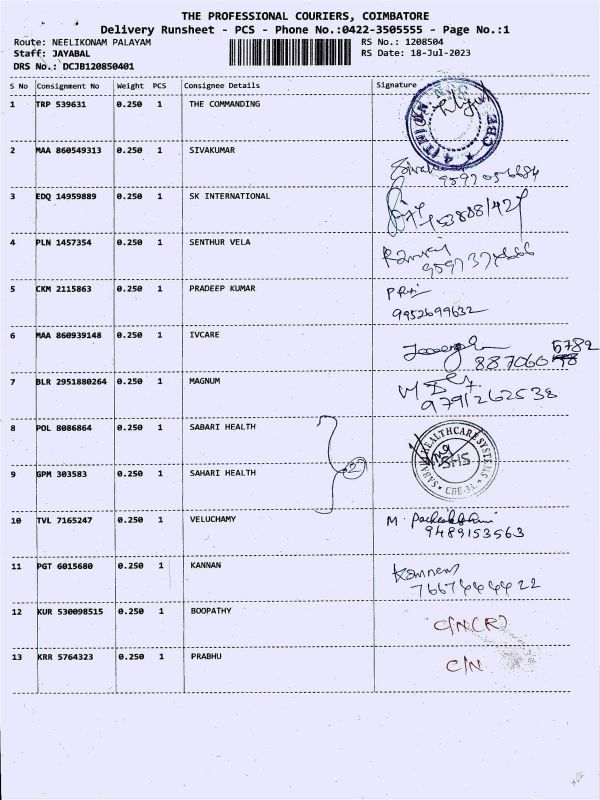 THE PROFESSIONAL COURIERS, COIMBATORE
Delivery Runsheet - PCS - Phone No.:0422-3505555 - Page No.:1
Route: NEELIKONAM PALAYAM RS No.: 1208504
Staff: JAYABAL RS Date: 18-Jul-2023
DRS No.: DCJB120850401
S No Consignment No Weight PCS Consignee Details Signature
1 TRP 539631 0.250 1 THE COMMANDING
2 MAA 860549313 0.250 1 SIVAKUMAR
3 EDQ 14959889 0.250 1 SK INTERNATIONAL
4 PLN 1457354 0.250 1 SENTHUR VELA
5 CKM 2115863 0.250 1 PRADEEP KUMAR
9952699632
6 MAA 860939148 0.250 1 IVCARE
7 BLR 2951880264 0.250 1 MAGNUM
9791262538
8 POL 8086864 0.250 1 SABARI HEALTH
HEALTHCARE SYSTEMS
SHS
9 GPM 303583 0.250 1 SAHARI HEALTH
10 TVL 7165247 0.250 1 VELUCHAMY
9489153563
11 PGT 6015680 0.250 1 KANNAN
12 KUR 530098515 0.250 1 BOOPATHY C/N(R)
13 KRR 5764323 0.250 1 PRABHU C/N